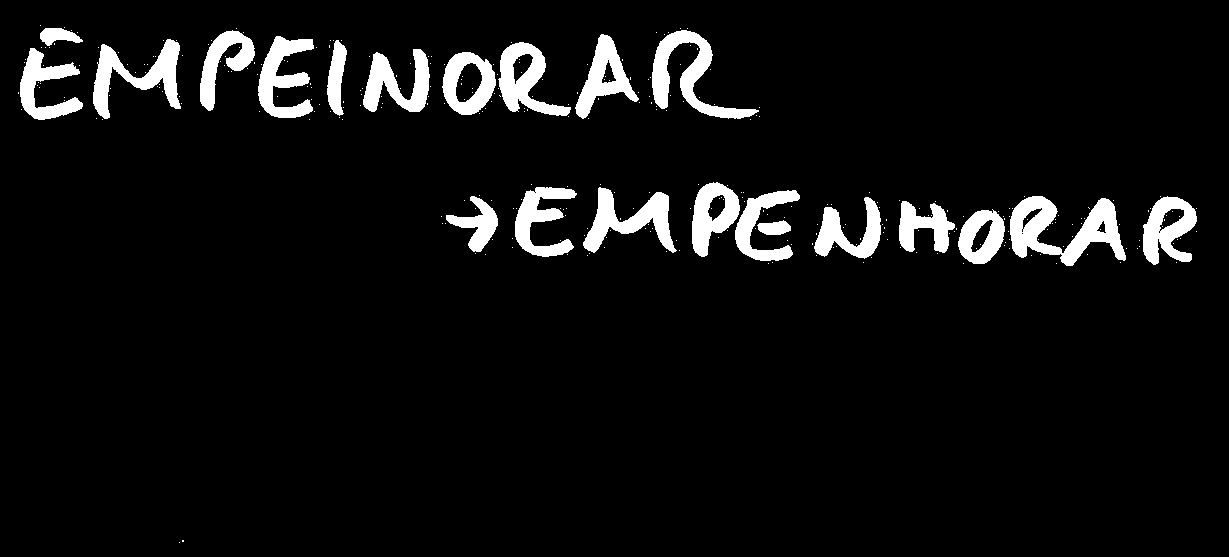 EMPEINORAR
→EMPENHORAR